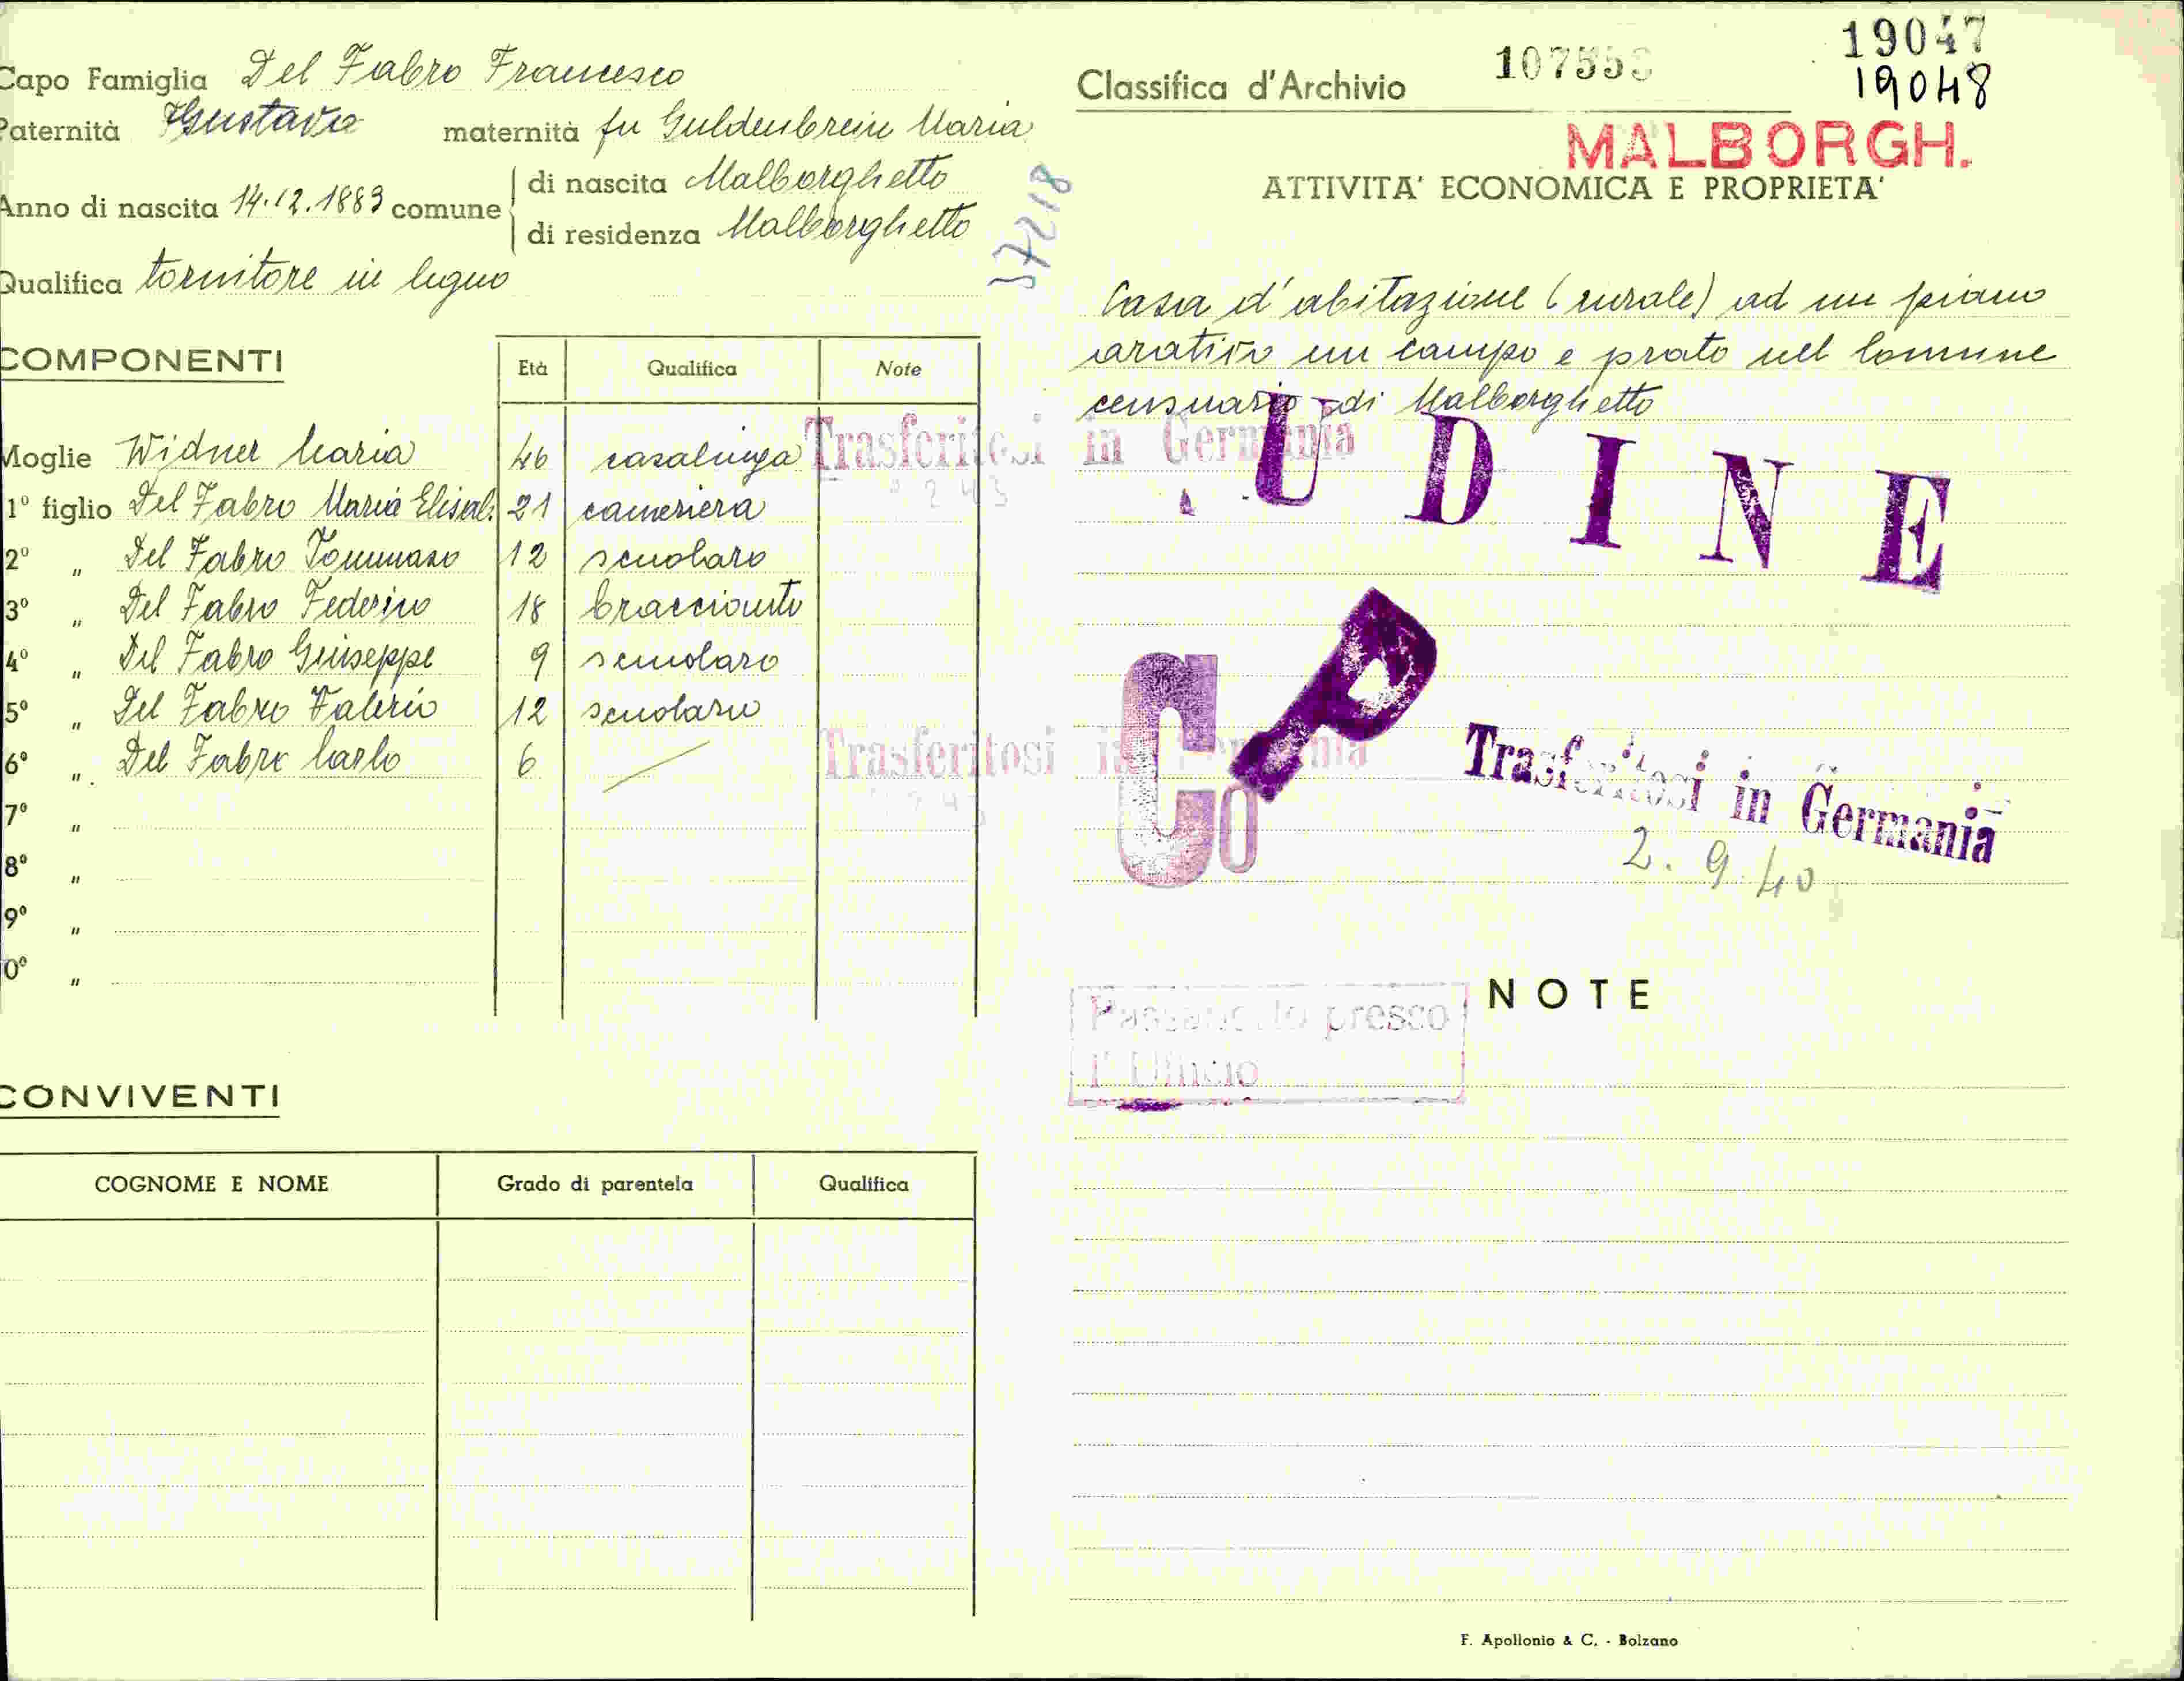 Capo Famiglia Del Fabro Francesco
Paternità Gustavo maternità fu Guldenbrein Maria
Anno di nascita 14.12.1883 comune
di nascita Malborghetto
di residenza Malborghetto
Qualifica tornitore in legno
37218
COMPONENTI
Età Qualifica Note
Moglie Widner Maria 46 casalinga Trasferitosi in Germania
1º figlio Del Fabro Maria Elisab. 21 cameriera
2º " Del Fabro Tommaso 12 scuolaro
3º " Del Fabro Federico 18 bracciante
4º " Del Fabro Giuseppe 9 scuolaro
5º " Del Fabro Valerio 12 scuolaro
6º " Del Fabro Carlo 6 Trasferitosi in Germania
7º "
8º "
9º "
0º "
CONVIVENTI
COGNOME E NOME Grado di parentela Qualifica
Classifica d'Archivio
19047
19048
MALBORGH.
ATTIVITA' ECONOMICA E PROPRIETA'
Casa d'abitazione (rurale) ad un piano
arativo un campo e prato nel Comune
censuario di Malborghetto
UDINE
Co
P
Trasferitosi in Germania
2.9.40
NOTE
presso
l'Ufficio
F. Apollonio & C. - Bolzano